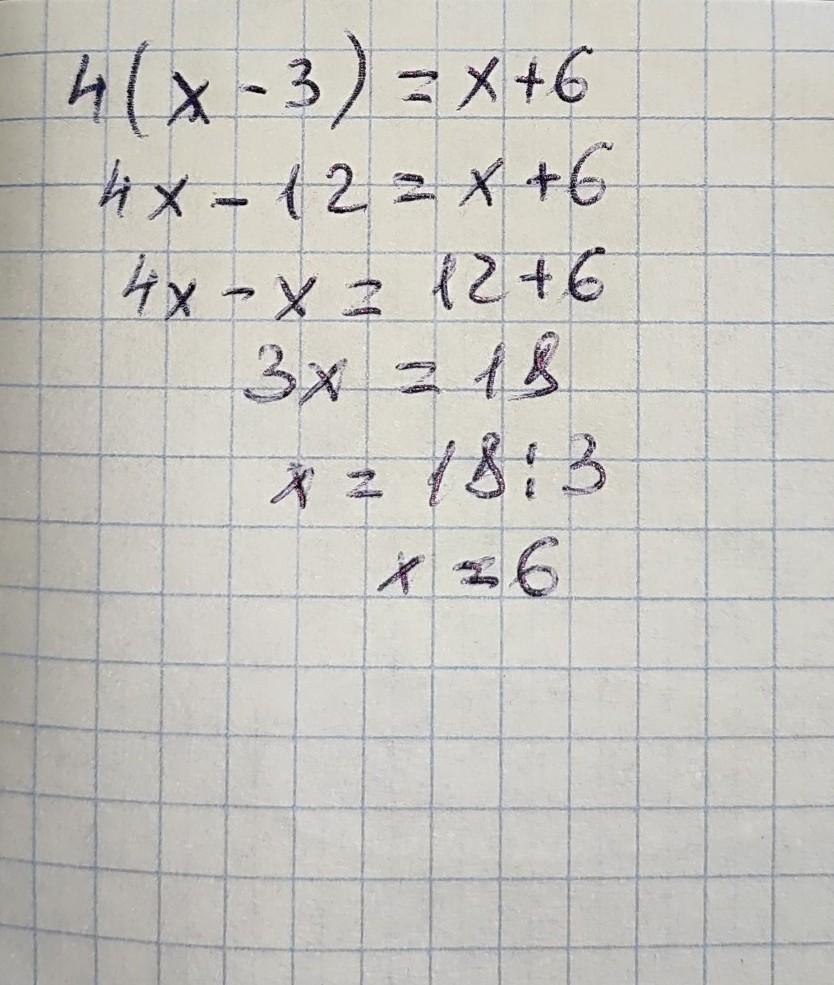 4(x-3)=x+6
4x-12=x+6
4x-x=12+6
3x=18
x=18:3
x=6